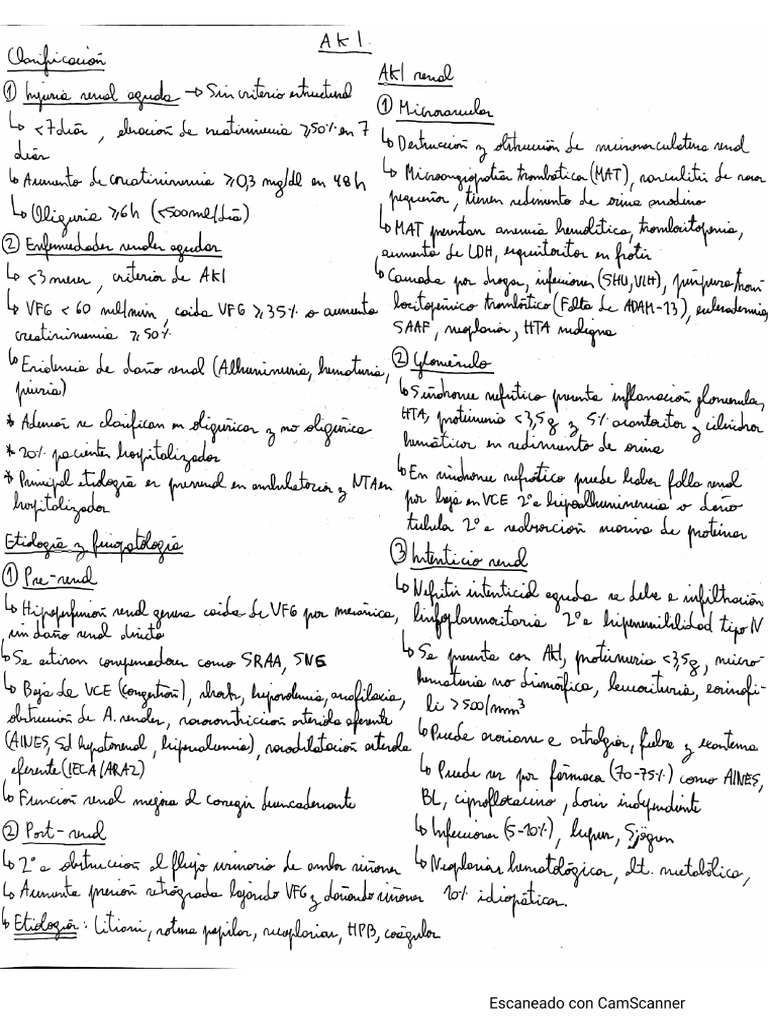 AKI.
Clasificación
① Injuria renal aguda → Sin criterio estructural
↳ <7 días, elevación de creatininemia ≥50% en 7
días
↳ Aumento de creatininemia ≥0,3 mg/dl en 48h
↳ Oliguria ≥6h (<500ml/día)
② Enfermedades renales agudas
↳ <3 meses, criterios de AKI
↳ VFG < 60 ml/min, caída VFG ≥35% o aumento
creatininemia ≥50%
↳ Evidencia de daño renal (Albuminuria, hematuria,
piuria)
* Además se clasifican en oligúricas y no oligúrica
* 20% pacientes hospitalizados
* Principal etiología es prerenal en ambulatorios y NTA en
hospitalizados
Etiología y fisiopatología
① Pre-renal
↳ Hipoperfusión renal genera caída de VFG por mecánica,
sin daño renal directo
↳ Se activan compensadores como SRAA, SNS
↳ Baja de VCE (congestión), shock, hipovolemia, anafilaxia,
obstrucción de A. renales, vasoconstricción arteriola aferente
(AINES, Sd hepatorenal, hipercalcemia), vasodilatación arteriola
eferente (IECA/ARA2)
↳ Función renal mejora al corregir desencadenante
② Post-renal
↳ 2° a obstrucción al flujo urinario de ambos riñones
↳ Aumenta presión retrógrada bajando VFG y dañando riñones
↳ Etiología: Litiasis, rotura papilar, neoplasias, HPB, coágulos
AKI renal
① Microvascular
↳ Destrucción y obstrucción de microvasculatura renal
↳ Microangiopatía trombótica (MAT), vasculitis de vasos
pequeños, tienen sedimento de orina anodino
↳ MAT presentan anemia hemolítica, trombocitopenia,
aumento de LDH, esquistocitos en frotis
↳ Causada por drogas, infecciones (SHU, VIH), púrpura trom
bocitopénico trombótico (Falta de ADAM-13), esclerodermia,
SAAF, neoplasia, HTA maligna
② Glomérulo
↳ Síndrome nefrítico presenta inflamación glomerular,
HTA, proteinuria <3,5g y 5% acantocitos y cilindros
hemáticos en sedimento de orina
↳ En síndrome nefrótico puede haber falla renal
por baja en VCE 2° a hipoalbuminemia o daño
tubular 2° a reabsorción masiva de proteínas
③ Intersticio renal
↳ Nefritis intersticial aguda se debe a infiltración
linfoplasmocitaria 2° a hipersensibilidad tipo IV
↳ Se presenta con AKI, proteinuria <3,5g, micro-
hematuria no dismórfica, leucocituria, eosinofi-
lia >500/mm³
↳ Puede asociarse a artralgias, fiebre y exantema
↳ Puede ser por fármacos (70-75%) como AINES,
BL, ciprofloxacino, dosis independiente
↳ Infecciones (5-10%), lupus, Sjögren
↳ Neoplasias hematológicas, alt. metabólica,
10% idiopáticas.
Escaneado con CamScanner